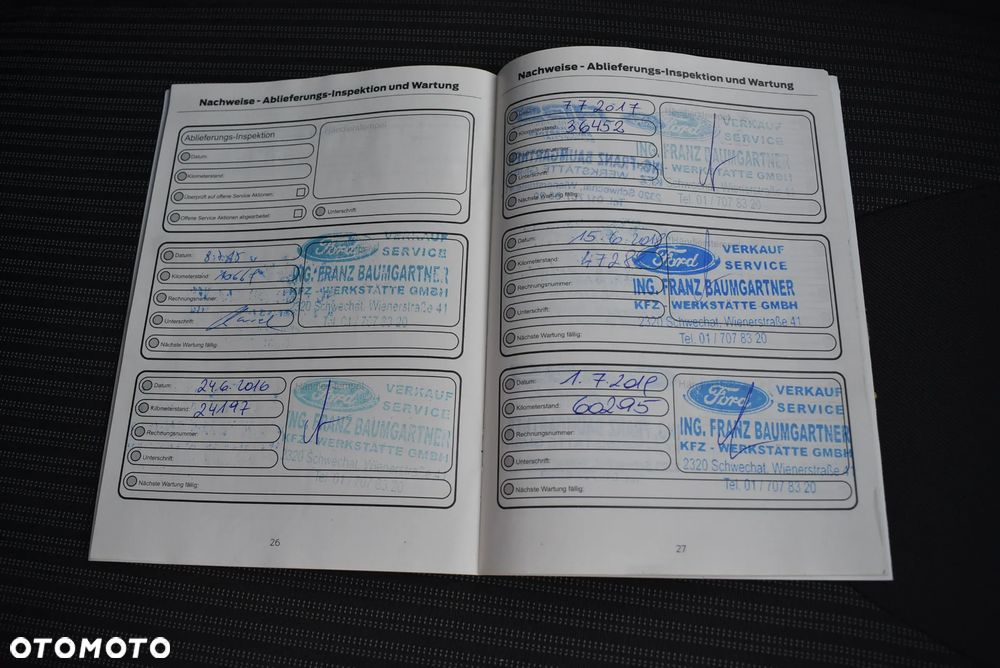 Nachweise - Ablieferungs-Inspektion und Wartung
Ablieferungs-Inspektion
Händlerstempel
Datum:
Kilometerstand:
Überprüft auf offene Service Aktionen:
Offene Service Aktionen abgearbeitet:
Unterschrift:
Datum:
Kilometerstand:
Rechnungsnummer:
Unterschrift:
Nächste Wartung fällig:
Ford
VERKAUF
SERVICE
ING. FRANZ BAUMGARTNER
KFZ - WERKSTÄTTE GMBH
2320 Schwechat, Wienerstraße 41
Tel. 01 / 707 83 20
Datum: 24.6.2016
Kilometerstand: 24197
Rechnungsnummer:
Unterschrift:
Nächste Wartung fällig:
Ford
VERKAUF
SERVICE
ING. FRANZ BAUMGARTNER
KFZ - WERKSTÄTTE GMBH
2320 Schwechat, Wienerstraße 41
Tel. 01 / 707 83 20
26
Nachweise - Ablieferungs-Inspektion und Wartung
7.7.2017
Kilometerstand: 36452
Unterschrift:
Nächste Wartung fällig:
Ford
VERKAUF
SERVICE
ING. FRANZ BAUMGARTNER
KFZ - WERKSTÄTTE GMBH
2320 Schwechat, Wienerstraße 41
Tel. 01 / 707 83 20
Datum: 15.6.2018
Kilometerstand:
Rechnungsnummer:
Unterschrift:
Nächste Wartung fällig:
Ford
VERKAUF
SERVICE
ING. FRANZ BAUMGARTNER
KFZ - WERKSTÄTTE GMBH
2320 Schwechat, Wienerstraße 41
Tel. 01 / 707 83 20
Datum: 1.7.2019
Kilometerstand: 60295
Rechnungsnummer:
Unterschrift:
Nächste Wartung fällig:
Ford
VERKAUF
SERVICE
ING. FRANZ BAUMGARTNER
KFZ - WERKSTÄTTE GMBH
2320 Schwechat, Wienerstraße 41
Tel. 01 / 707 83 20
27
OTOMOTO